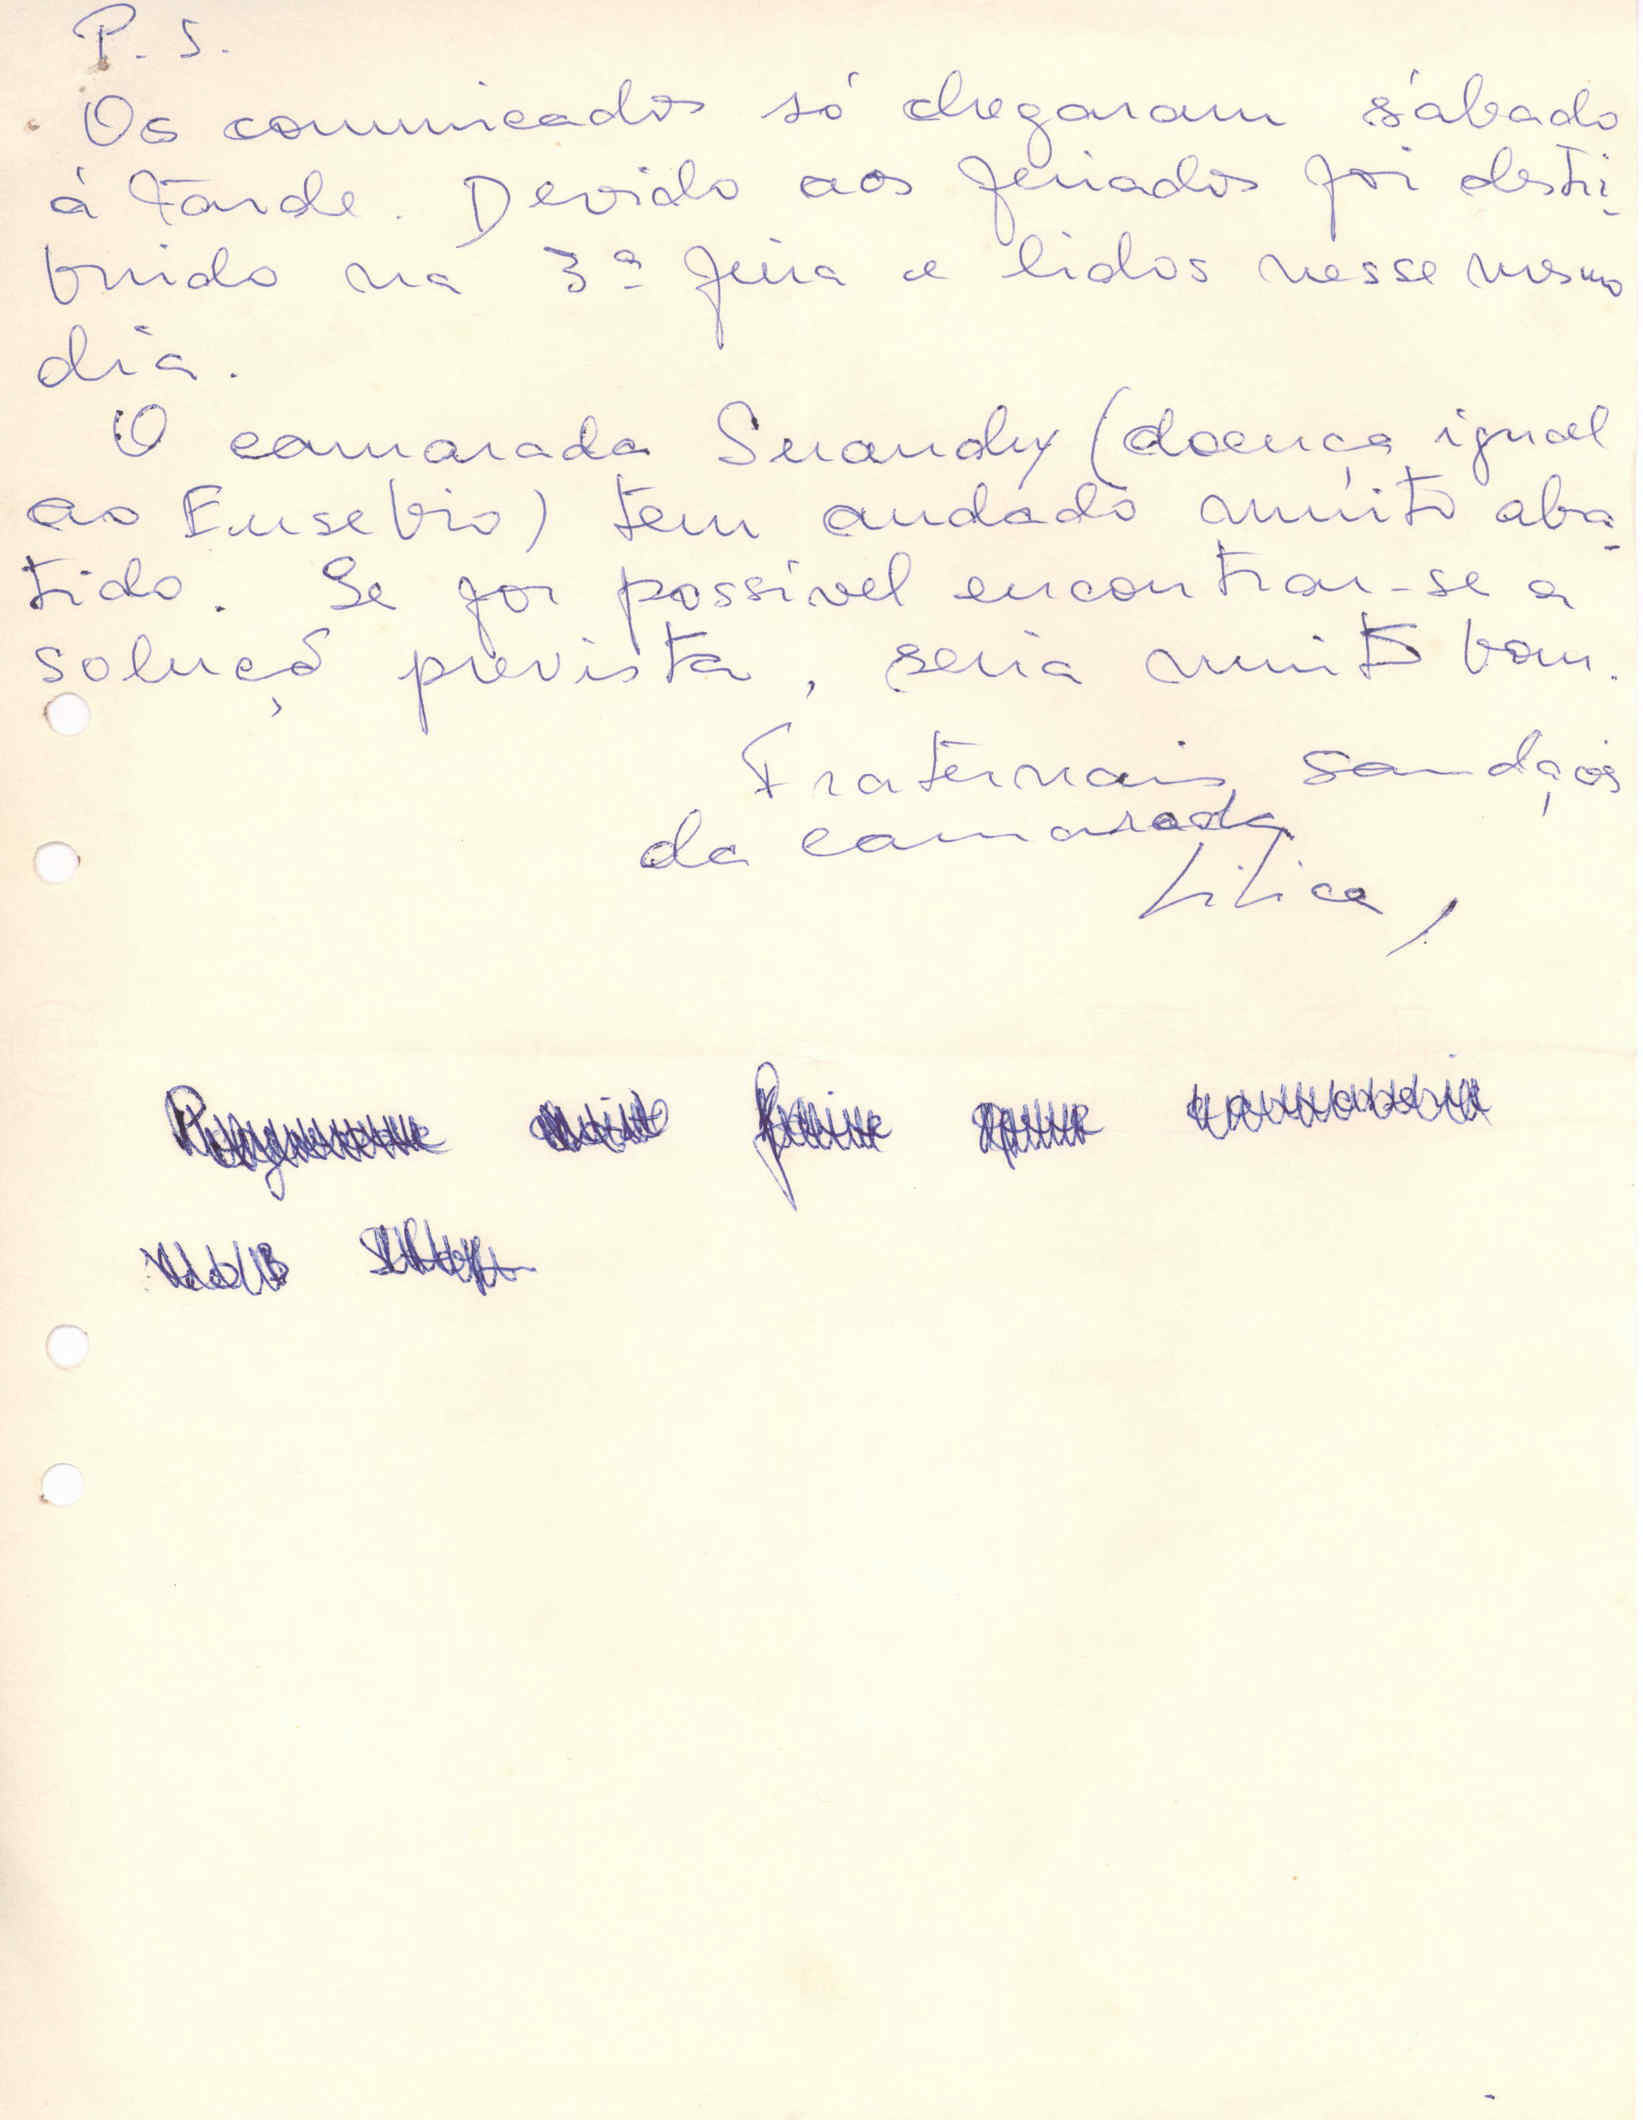 P. S.
Os comunicados só chegaram sábado
á tarde. Devido aos feriados foi destri-
buido na 3ª feira e lidos nesse mesmo
dia.
O camarada (doença igual
ao Eusebio) tem andado muito aba-
tido. Se for possível encontrar-se a
soluçõ prevista, seria muito bom.
Fraternais saudações
da camarada
Lilica,